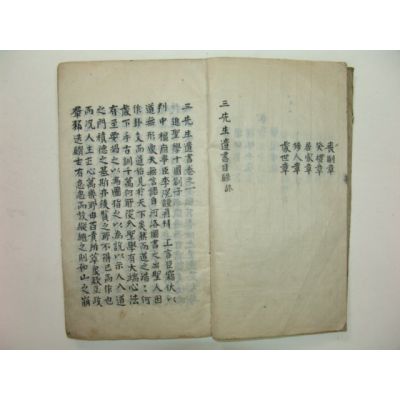 喪制章
祭禮章
居家章
接人章
處世章
三先生遺書目錄終
三先生遺書卷之一
進聖學十圖劄子
判中樞府事臣李滉謹再拜 上言臣竊伏以
道無形象天無言語自河洛圖書之出聖人因
作卦爻而道始見於天下矣然而道之浩浩何
處下手古訓千萬何所從入聖學有大端心法
有至要揭以爲圖指之以爲說以示人入道
之門積德之基斯亦後賢之所不得已而作也
而況人主一心萬幾所由百責所萃衆欲互攻
群邪迭鑽一有怠忽而放縱繼之則如山之崩